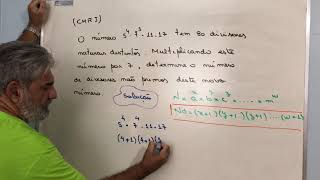 (CMRJ)
O número 5⁴.7³.11.17 tem 80 divisores
naturais distintos. Multiplicando este
número por 7, determine o número
de divisores não primos deste novo
número.
Solução
5⁴.7⁴.11.17
(4+1)(4+1)(1
N = a^x.b^y.c^z.....m^w
Nd = (x+1)(y+1)(z+1)....(w+1)